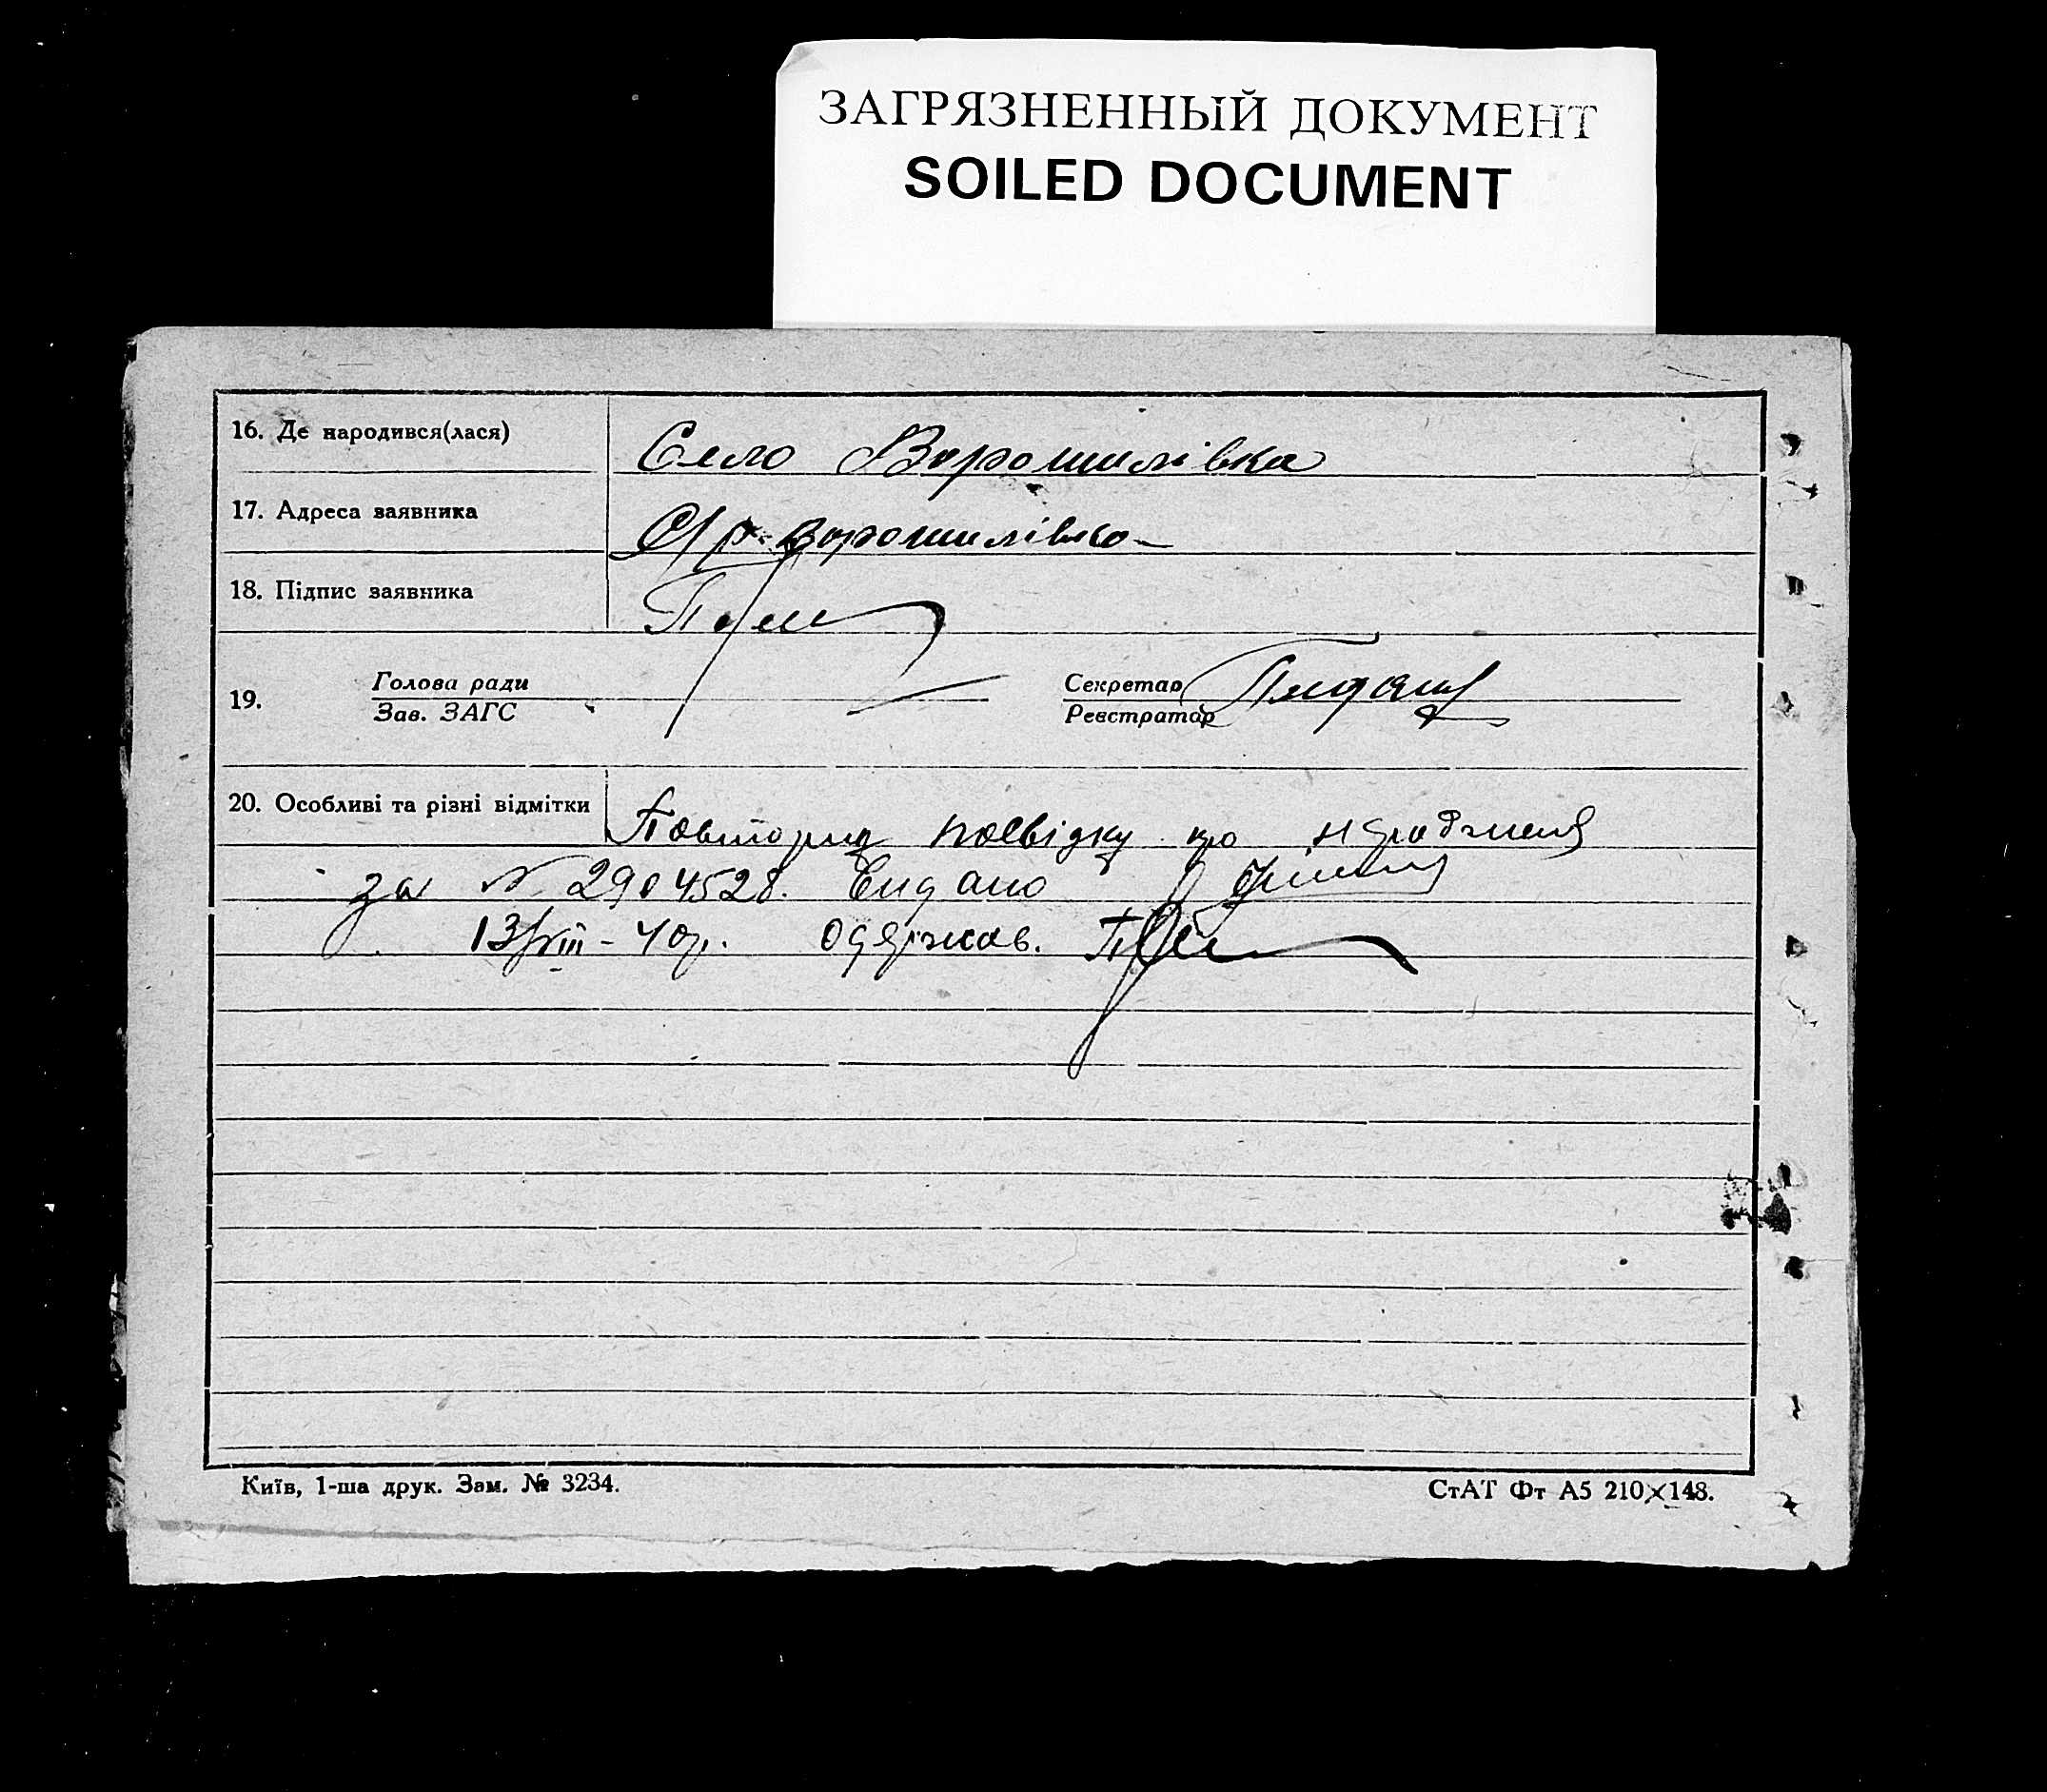 ЗАГРЯЗНЕННЫЙ ДОКУМЕНТ
SOILED DOCUMENT
16. Де народився(лася) Село Ворошилівка
17. Адреса заявника С/р. Ворошилівка
18. Підпис заявника
19. Голова ради
Зав. ЗАГС
Секретар
Реєстратор
20. Особливі та різні відмітки Повторну посвідку про народження
за № 2904528. Видано
13/VIII - 40р. Одержав.
Київ, 1-ша друк. Зам. № 3234.
СтАТ Фт А5 210×148.